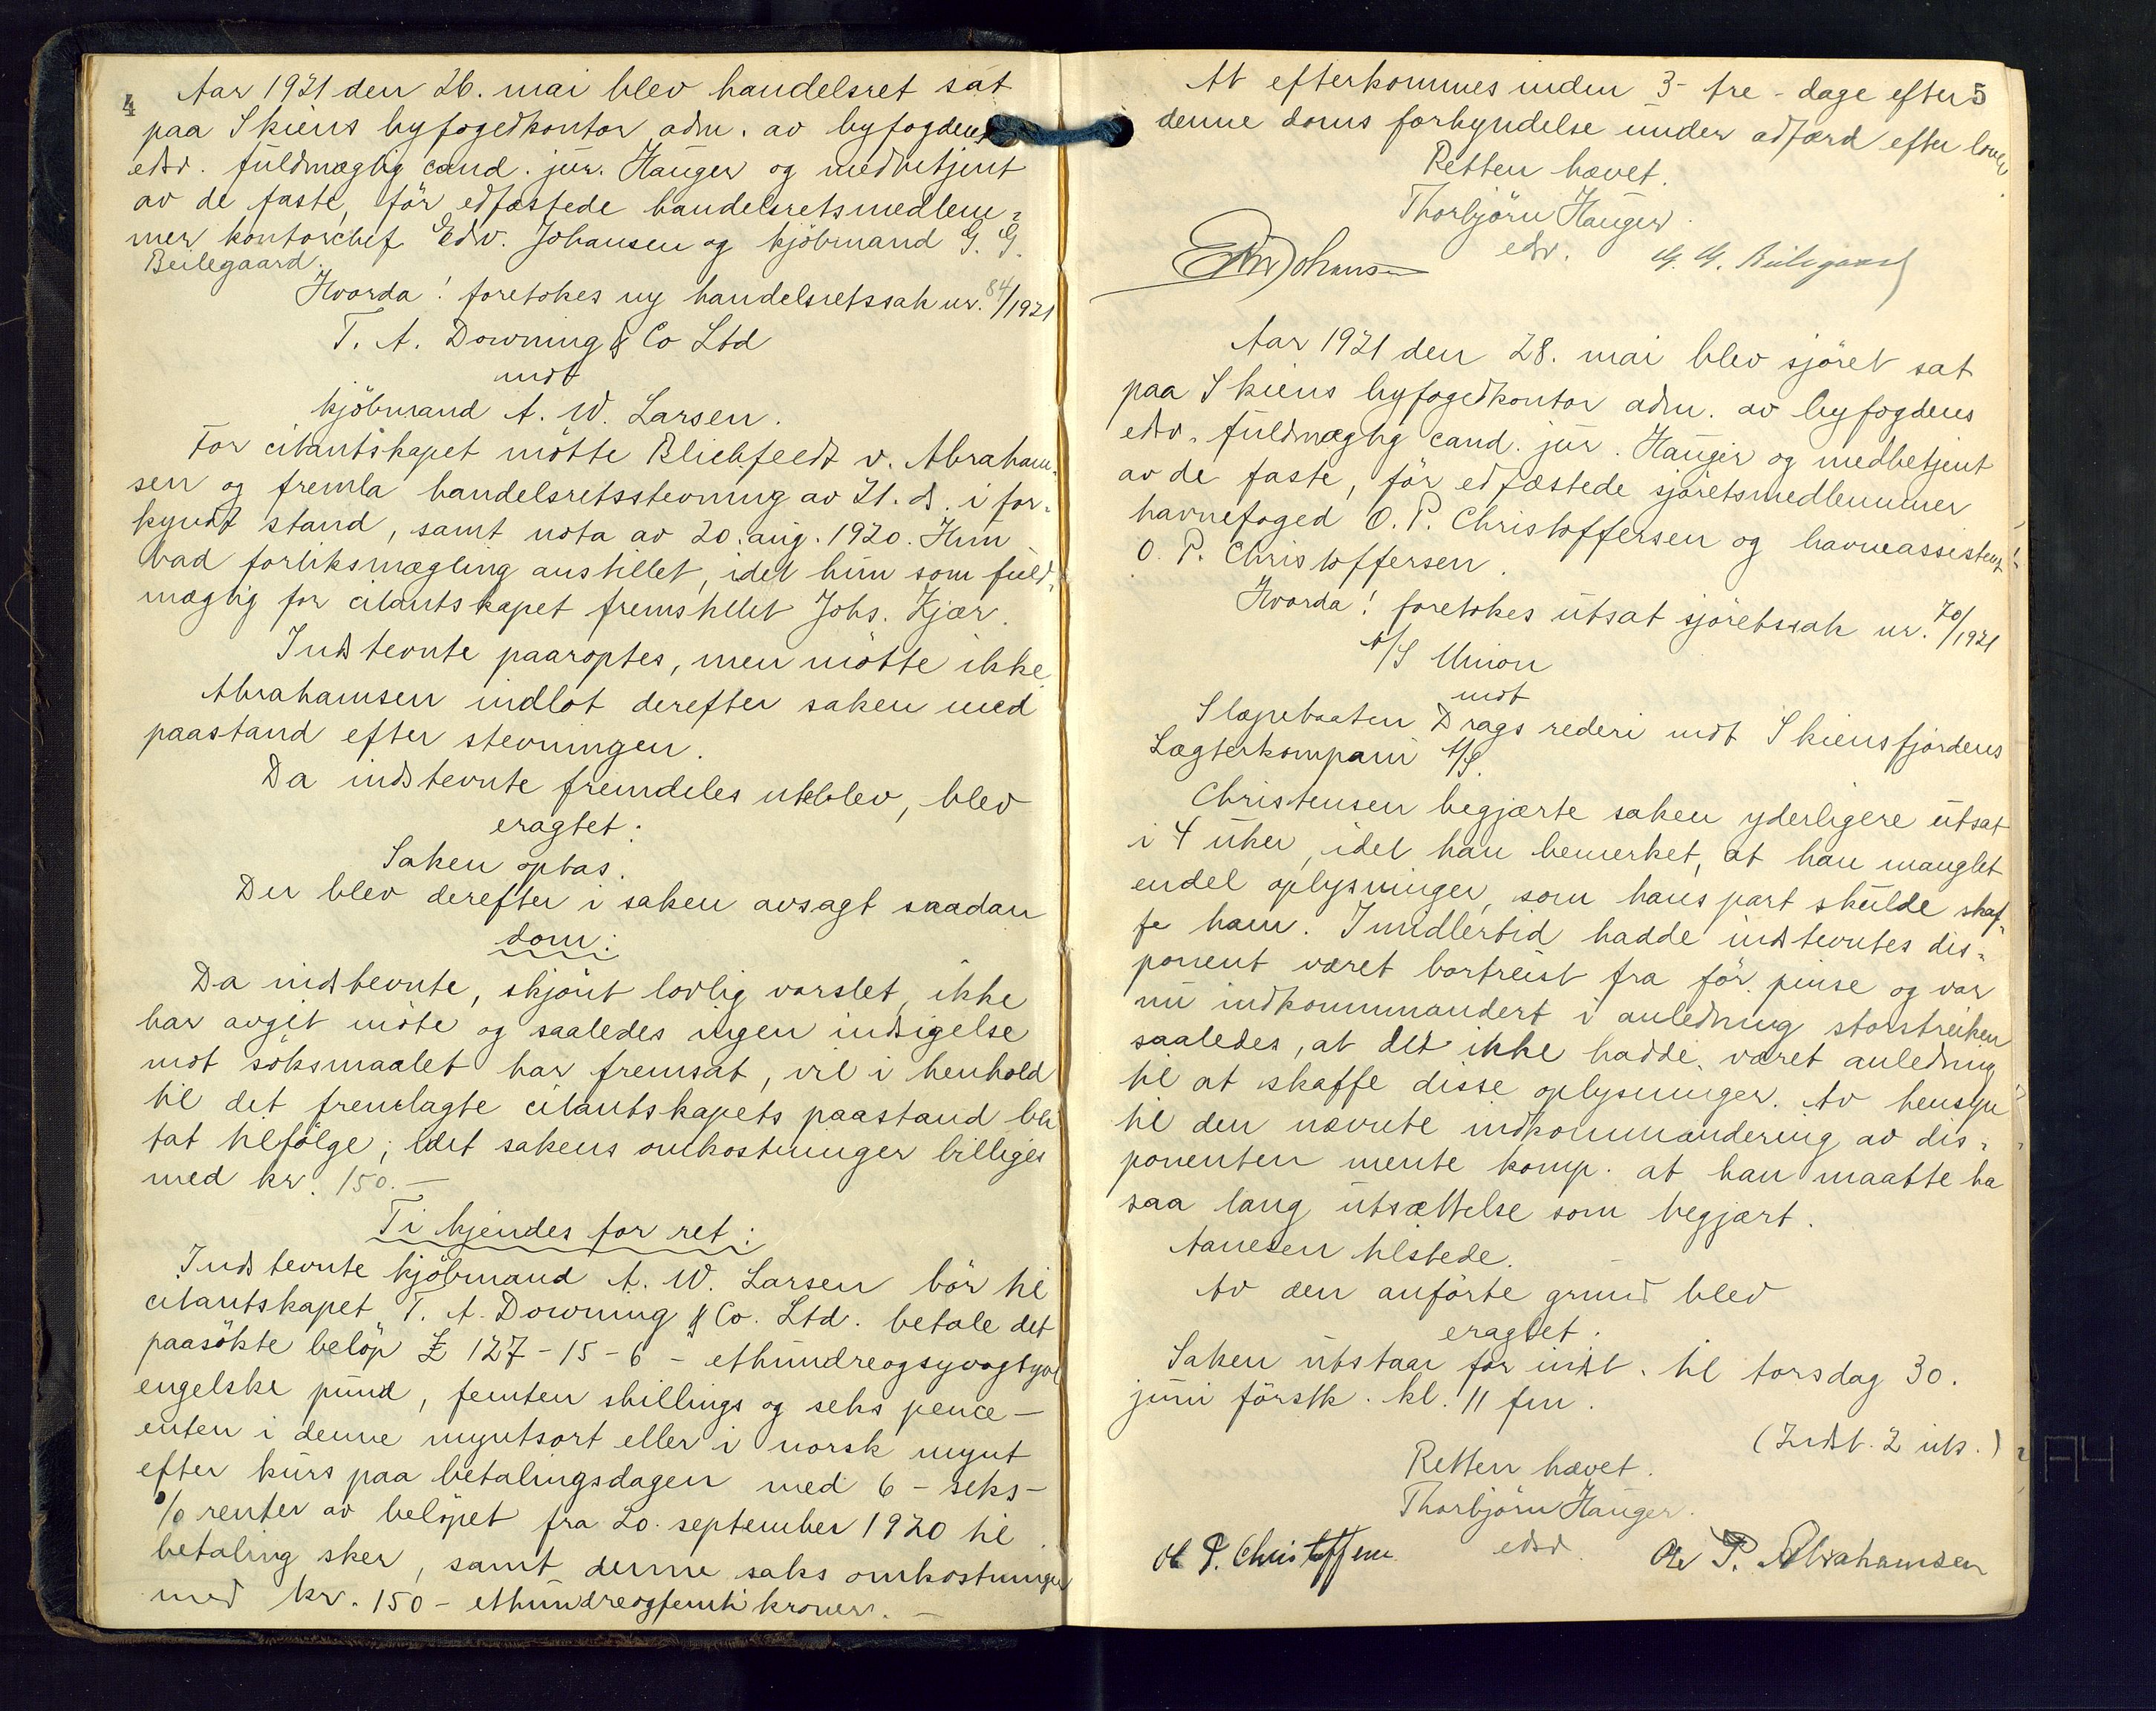 4
Aar 1921 den 26. mai blev handelsret sat
paa Skiens byfogedkontor adm. av byfogdens
edsv. fuldmægtig cand. jur. Hauger og medbetjent
av de faste, før edfæstede handelsretsmedlem-
mer kontorchef Edv. Johansen og kjöbmand G. G.
Beilegaard.
Hvorda! foretokes ny handelsretssak nr. 84/1921
T. A. Downing & Co Ltd
mot
kjöbmand A. W. Larsen.
For citantskapet mötte Blickfeldt v. Abraham-
sen og fremla handelsretsstevning av 21. ds. i for-
kyndt stand, samt nota av 20. aug. 1920. Hun
bad forliksmægling anstillet, idet hun som fuld-
mægtig for citantskapet fremstillet Johs. Kjær.
Indstevnte paaroptes, men mötte ikke.
Abrahamsen indlot derefter saken med
paastand efter stevningen.
Da indstevnte fremdeles uteblev, blev
eragtet:
Saken optas.
Der blev derefter i saken avsagt saadan
dom:
Da indstevnte, skjönt lovlig varslet, ikke
har avgit möte og saaledes ingen indsigelse
mot söksmaalet har fremsat, vil i henhold
til det fremlagte citantskapets paastand bli
tat tilfölge; idet sakens omkostninger billiges
med kr. 150.—
Ti kjendes for ret:
Indstevnte kjöbmand A. W. Larsen bör til
citantskapet T. A. Downing & Co. Ltd. betale det
paasökte belöp £ 127-15-6 - ethundreogsyvogtyve
engelske pund, femten shillings og seks pence —
enten i denne myntsort eller i norsk mynt
efter kurs paa betalingsdagen med 6 - seks -
% renter av belöpet fra 20. september 1920 til
betaling sker, samt denne saks omkostninger
med kr. 150 - ethundreogfemti kroner. —
5
At efterkommes inden 3 - tre - dage efter
denne doms forkyndelse under adfærd efter loven.
Retten hævet.
Thorbjörn Hauger
edsv.
Edv Johansen
G. G. Beilegaard
Aar 1921 den 28. mai blev sjöret sat
paa Skiens byfogedkontor adm. av byfogdens
edsv. fuldmægtig cand. jur. Hauger og medbetjent
av de faste, för edfæstede sjöretsmedlemmer
havnefoged O. P. Christoffersen og havneassistent
O. P. Christoffersen.
Hvorda! foretokes utsat sjöretssak nr. 70/1921
A/S Union
mot
Slæpebaaten Drags rederi mot Skiensfjordens
Lægterkompani A/S.
Christensen begjærte saken yderligere utsat
i 4 uker, idet han bemerket, at han manglet
endel oplysninger, som hans part skulde skaf-
fe ham. Imidlertid hadde indstevntes dis-
ponent været bortreist fra för pinse og var
nu indkommandert i anledning storstreiken
saaledes, at det ikke hadde været anledning
til at skaffe disse oplysninger. Av hensyn
til den nævnte indkommandering av dis-
ponenten mente komp. at han maatte ha
saa lang utsættelse som begjært.
Aanesen tilstede.
Av den anförte grund blev
eragtet:
Saken utstaar for indst. til torsdag 30.
juni förstk. kl. 11 fm.
(Indst. 2 uts.)
Retten hævet.
Thorbjörn Hauger.
edsv.
Ol P. Christoffersen
Ole P. Abrahamsen